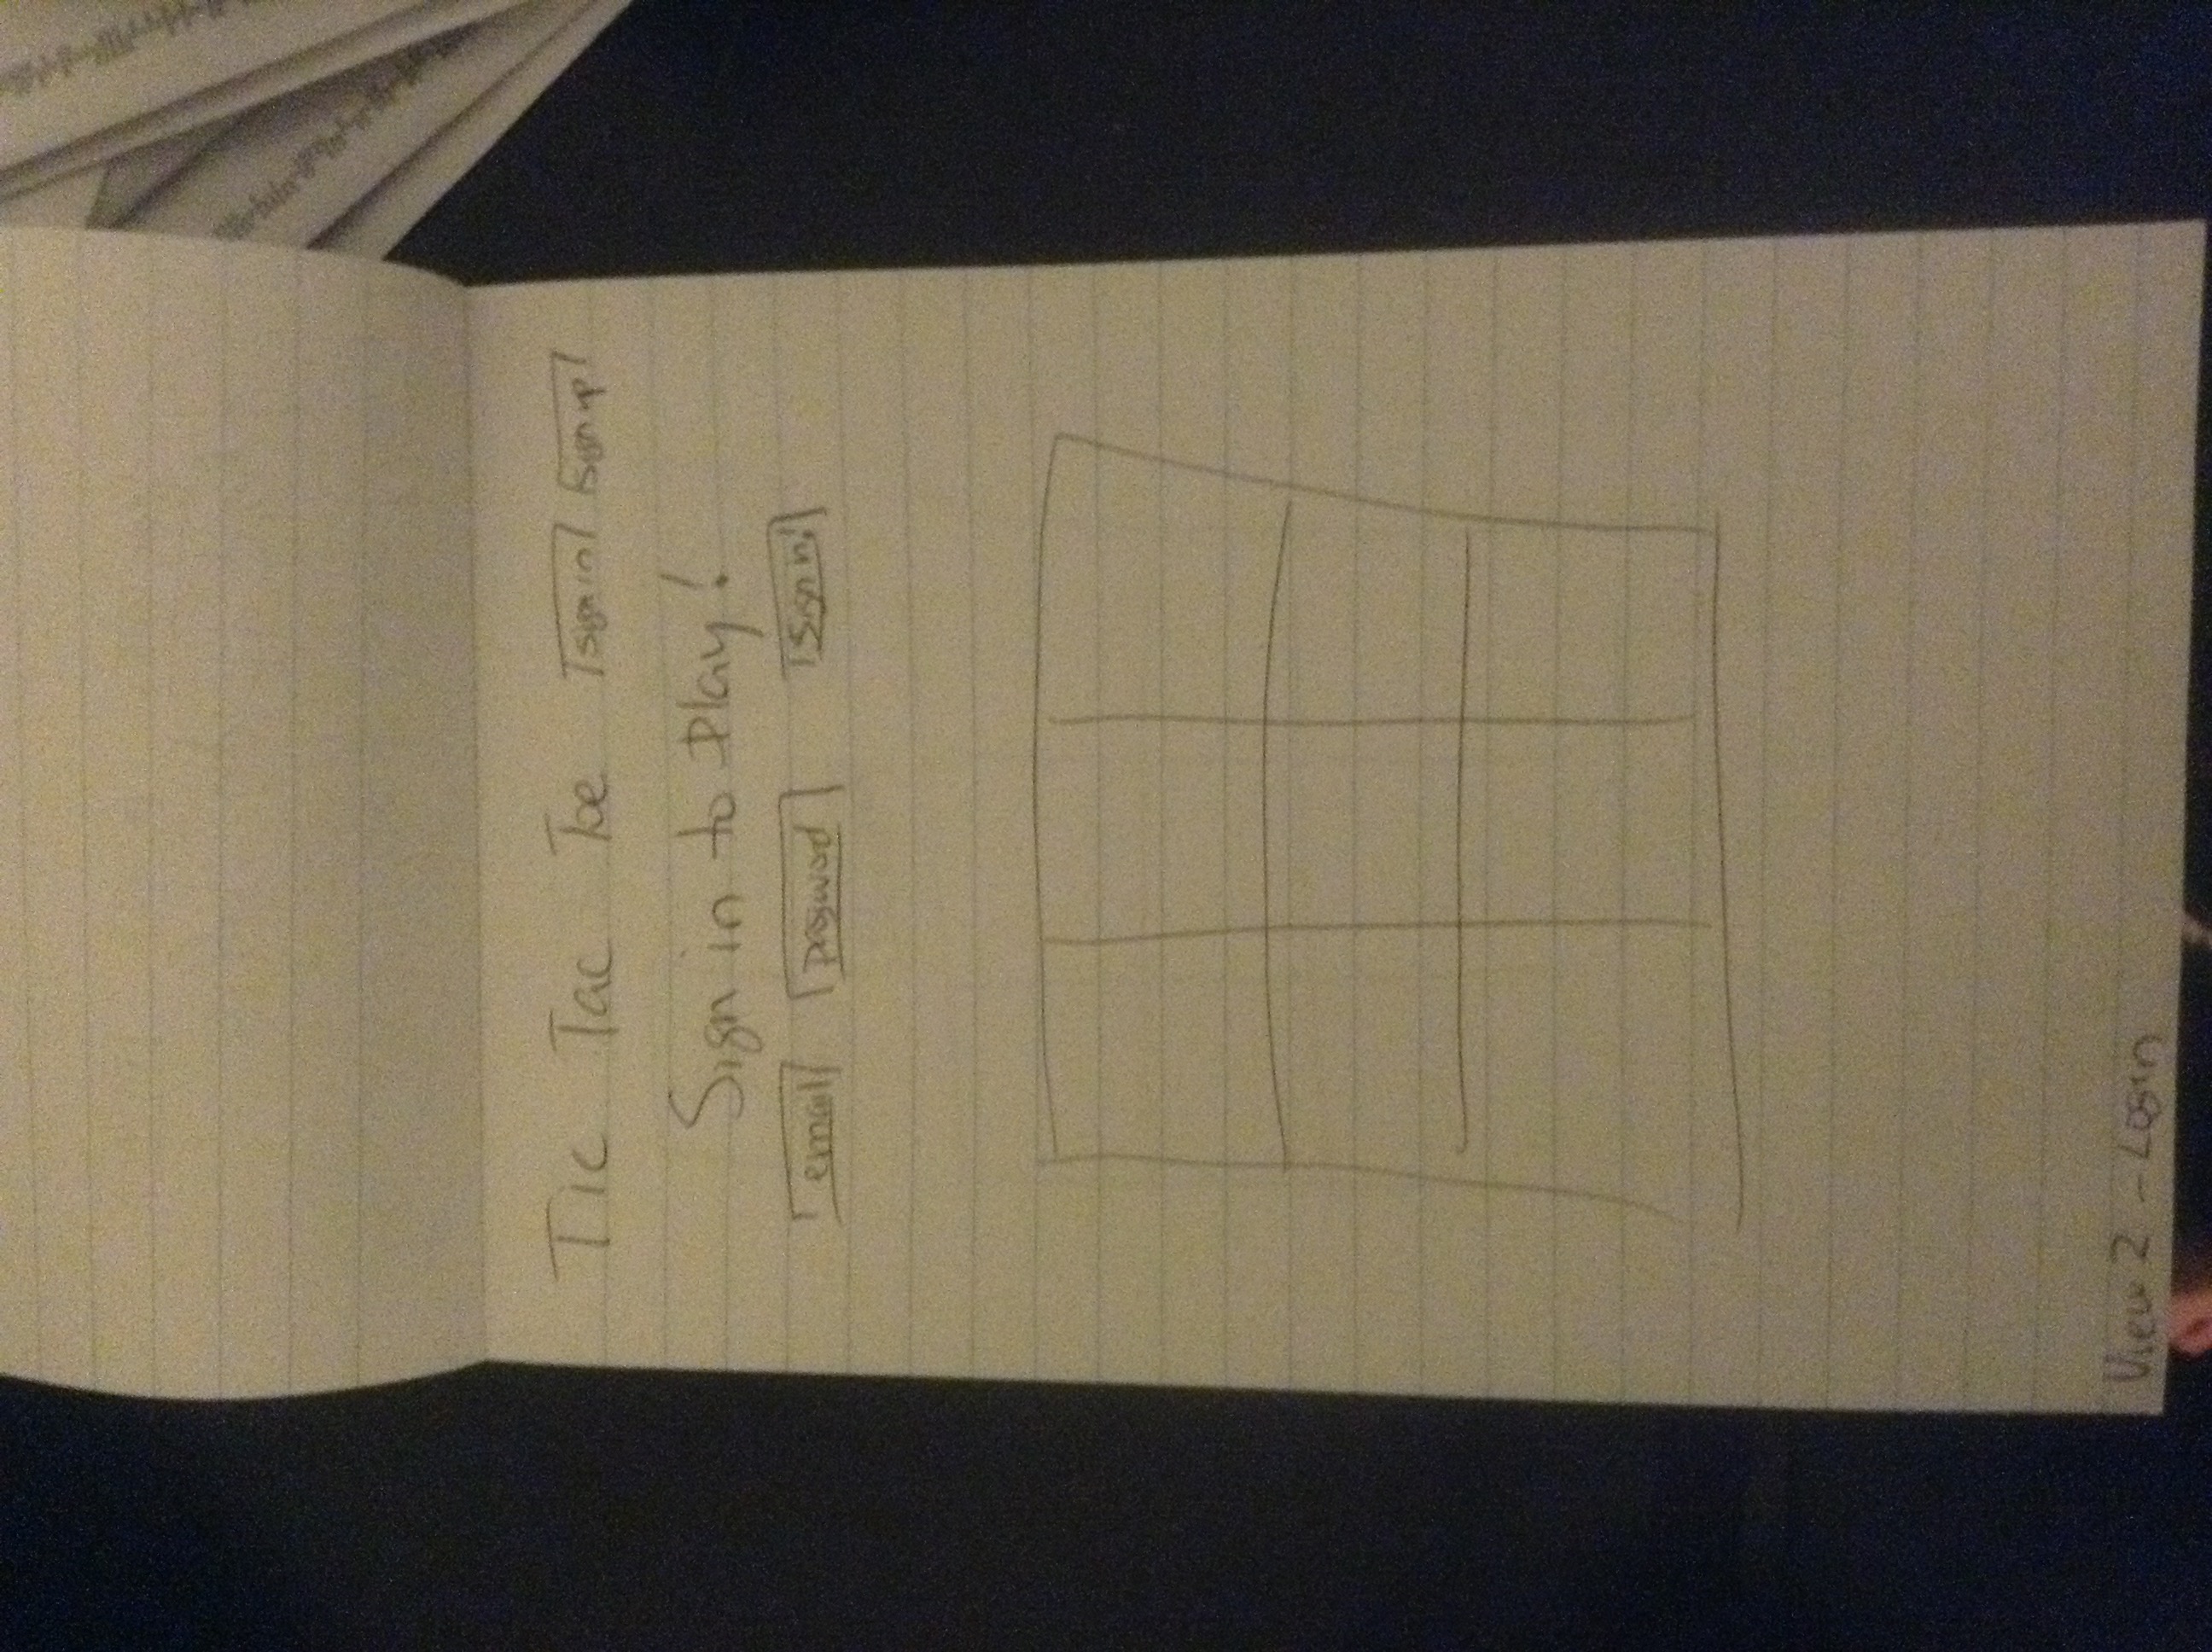 Tic Tac Toe sign in sign up!
Sign in to Play!
email password Sign in!
View 2 - Login